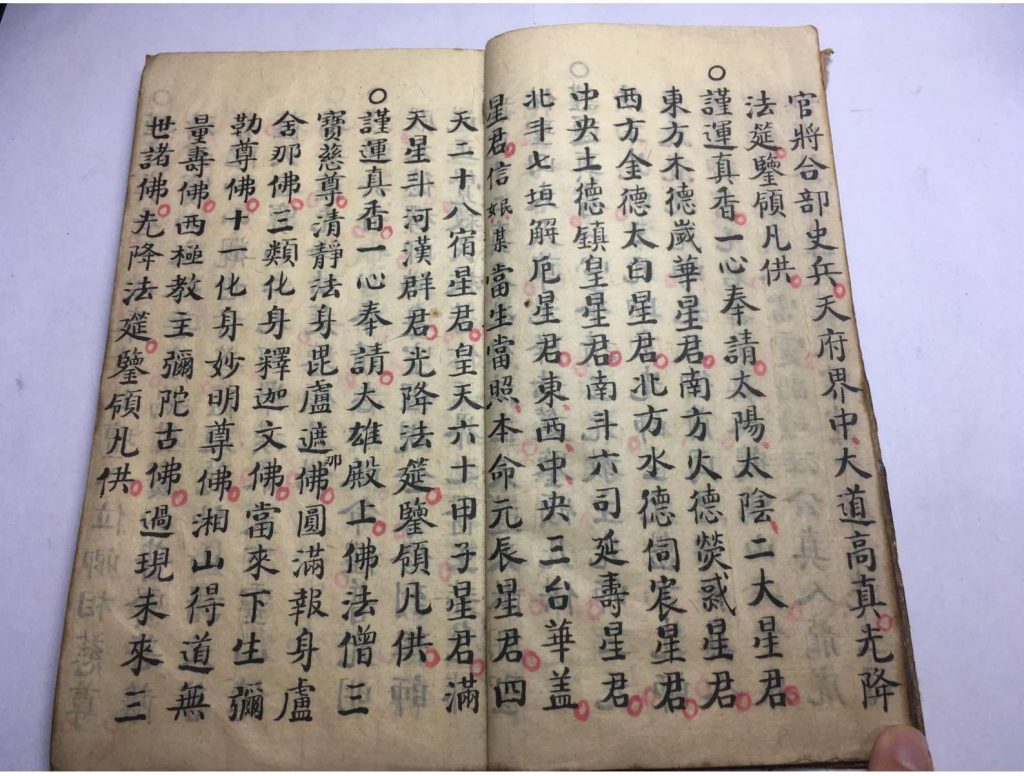 官將合部史兵。天府界中、大道高真。光降
法筵。鑒領凡供。
○謹運真香。一心奉請。太陽、太陰、二大星君。
東方木德歲華星君。南方火德熒惑星君。
西方金德太白星君。北方水德伺宸星君。
中央土德鎮皇星君。南斗六司延壽星君。
北斗七垣解厄星君。東、西、中、央三台華盖
星君。信姄某當生當照、本命元辰星君。四
天二十八宿星君。皇天六十甲子星君。滿
天星斗河漢群君。光降法筵。鑒領凡供。
○謹運真香。一心奉請。大雄殿上佛法僧三
寶慈尊。清靜法身毘盧遮那佛。圓滿報身盧
舍那佛。三類化身釋迦文佛。當來下生彌
勒尊佛。十一化身妙明尊佛。湘山得道無
量壽佛。西極教主彌陀古佛。過現未來三
世諸佛。光降法筵。鑒領凡供。